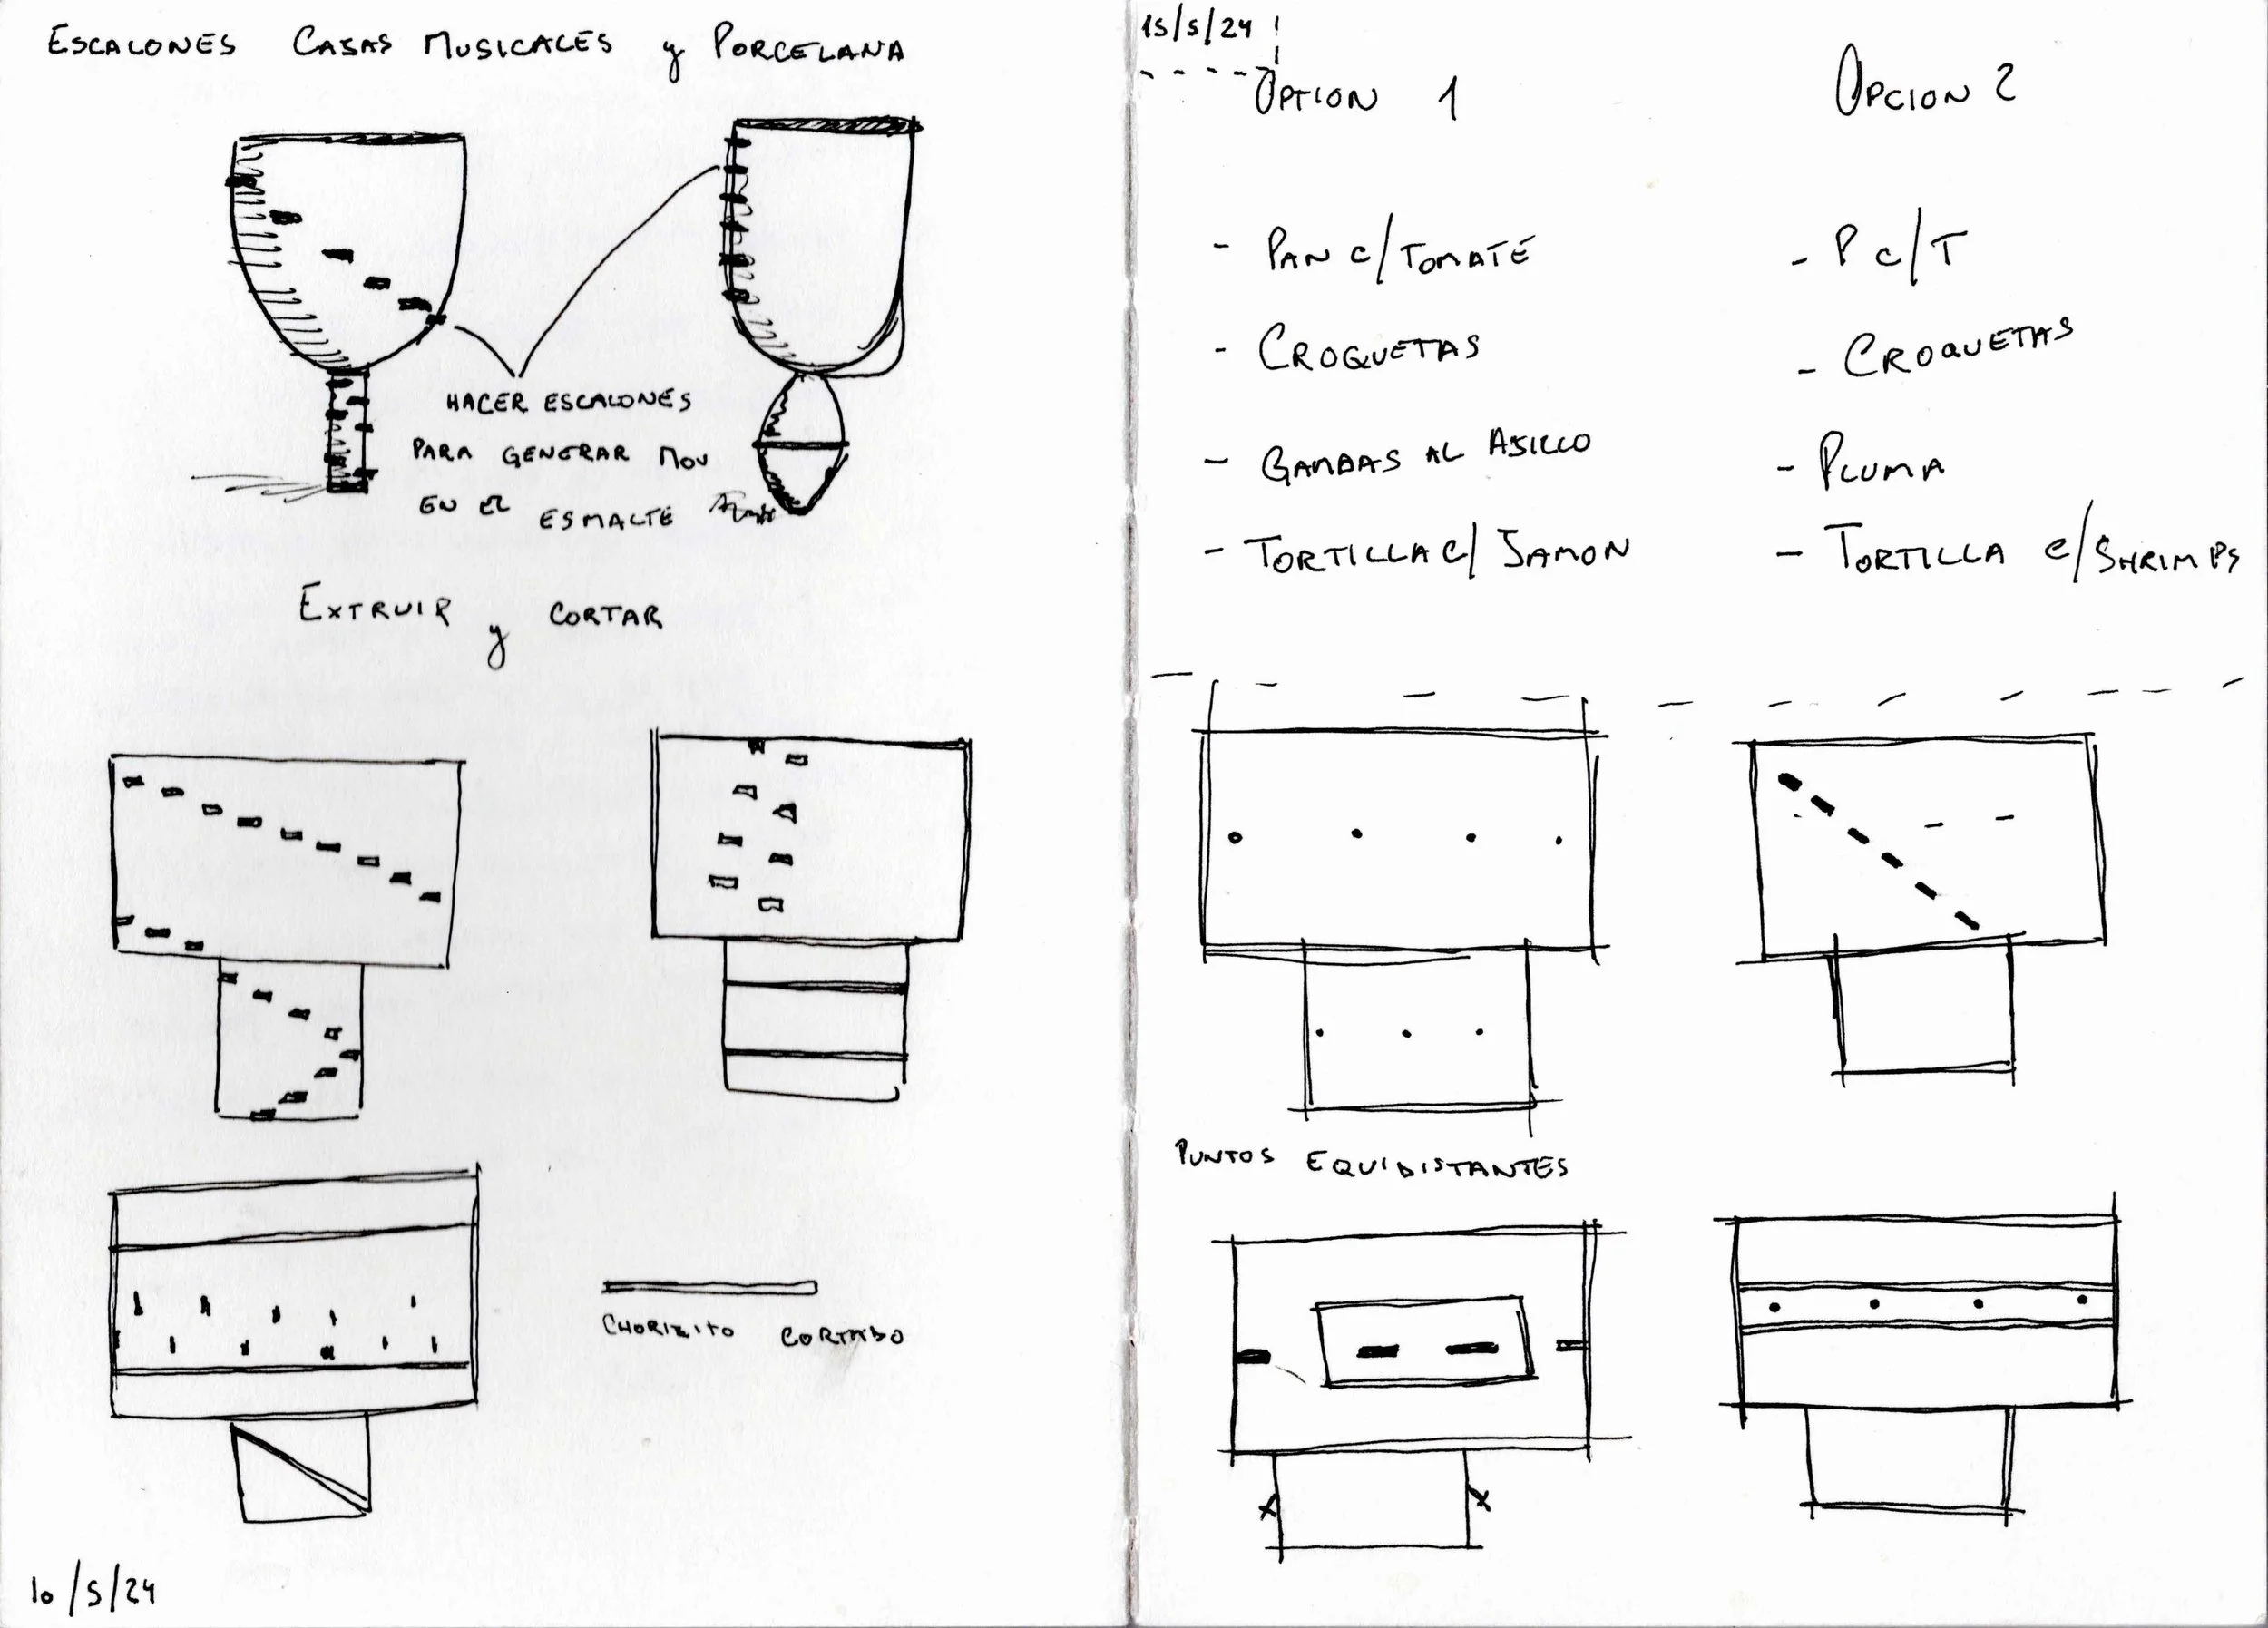 ESCALONES CASAS MUSICALES y PORCELANA
HACER ESCALONES
PARA GENERAR MOV
EN EL ESMALTE
EXTRUIR y CORTAR
CHORIZITO CORTADO
10/5/24
15/5/24
OPTION 1
- PAN C/TOMATE
- CROQUETAS
- GAMBAS AL AJILLO
- TORTILLA C/ JAMON
OPCION 2
- P C/T
- CROQUETAS
- PLUMA
- TORTILLA C/SHRIMPS
PUNTOS EQUIDISTANTES